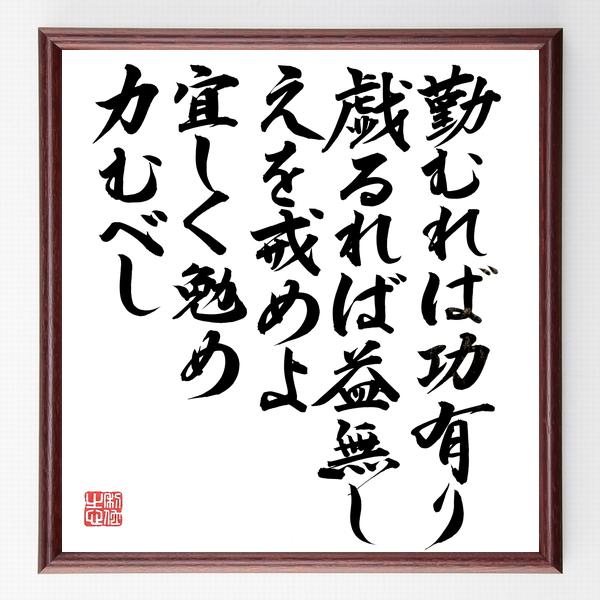 勤むれば功有り
戯るれば益無し
えを戒めよ
宜しく勉め
力むべし